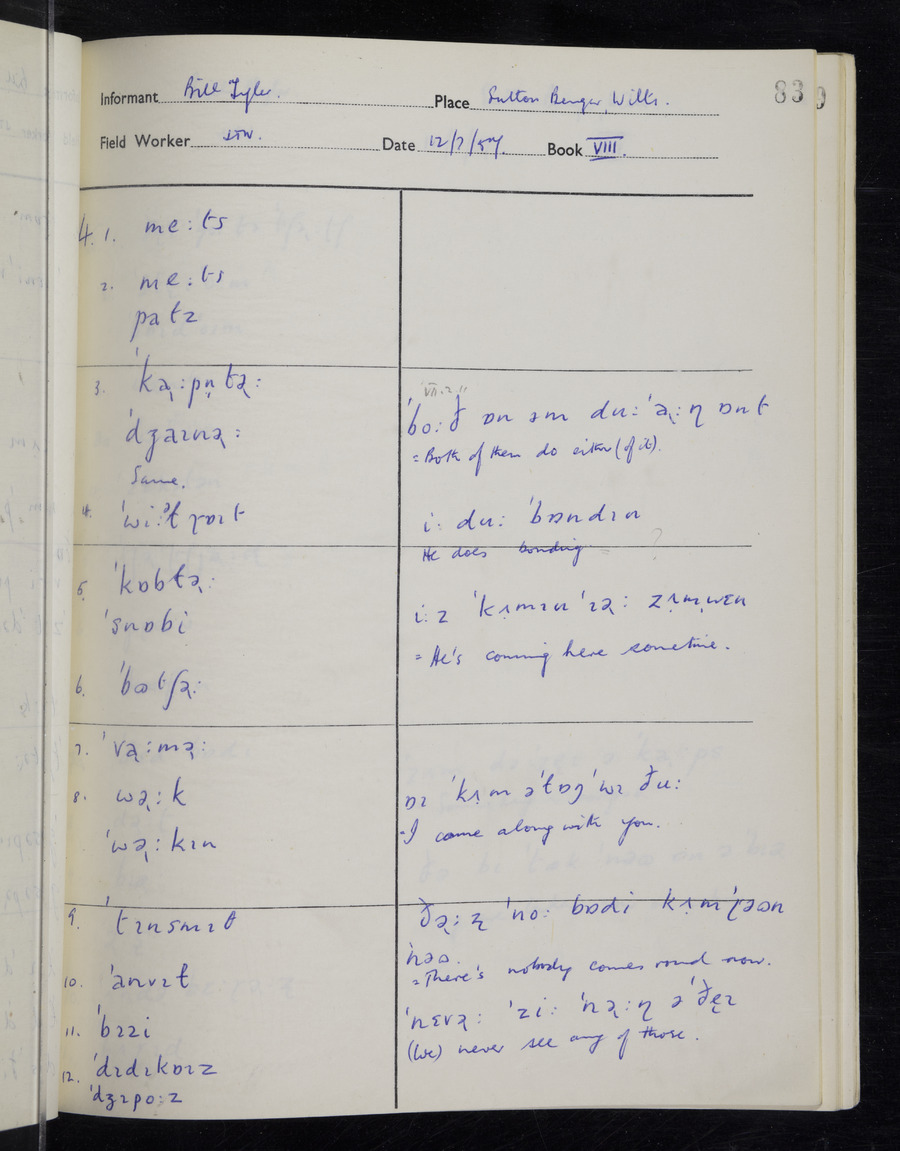 Informant Bill Tyler. Place Sutton Benger, Wilts. 83
Field Worker Date 12/7/54 Book VIII.
4. 1. meːts
2. meːts
patz
3. 'kəː̣pṇtəː̣
'dʒaɪnəː̣
Same.
4. 'wiːᵊlrɒɪt
5. 'kɒbləː̣
'snɒbi
6. 'bɒtʃəː̣
7. 'vəː̣məː̣
8. wəː̣k
'wəː̣kɪn
9. 'tɪnsmɪθ
10. 'anvɪl
11. 'bɪzi
12. 'dɪdɪkɒɪz
'dʒɪpoːz
VII.2.11
'boːð ɒn əm duː 'əː̣ṇ ɒnt
= Both of them do either (of it).
iː duː 'bɒndɪn
He does bonding = ?
iːz 'kʌmɪn 'ɪəː̣ zʌmwɛn
= He's coming here sometime.
ɒɪ 'kʌm ə'lɒŋ 'wɪ ðuː
= I came along with you.
ðəː̣z 'noː bɒdi kʌm 'rəʊn
'nəʊ.
= There's nobody comes round now.
'nɛvəː̣ 'ziː 'nəː̣n ə 'ðeɪ
(We) never see any of those.